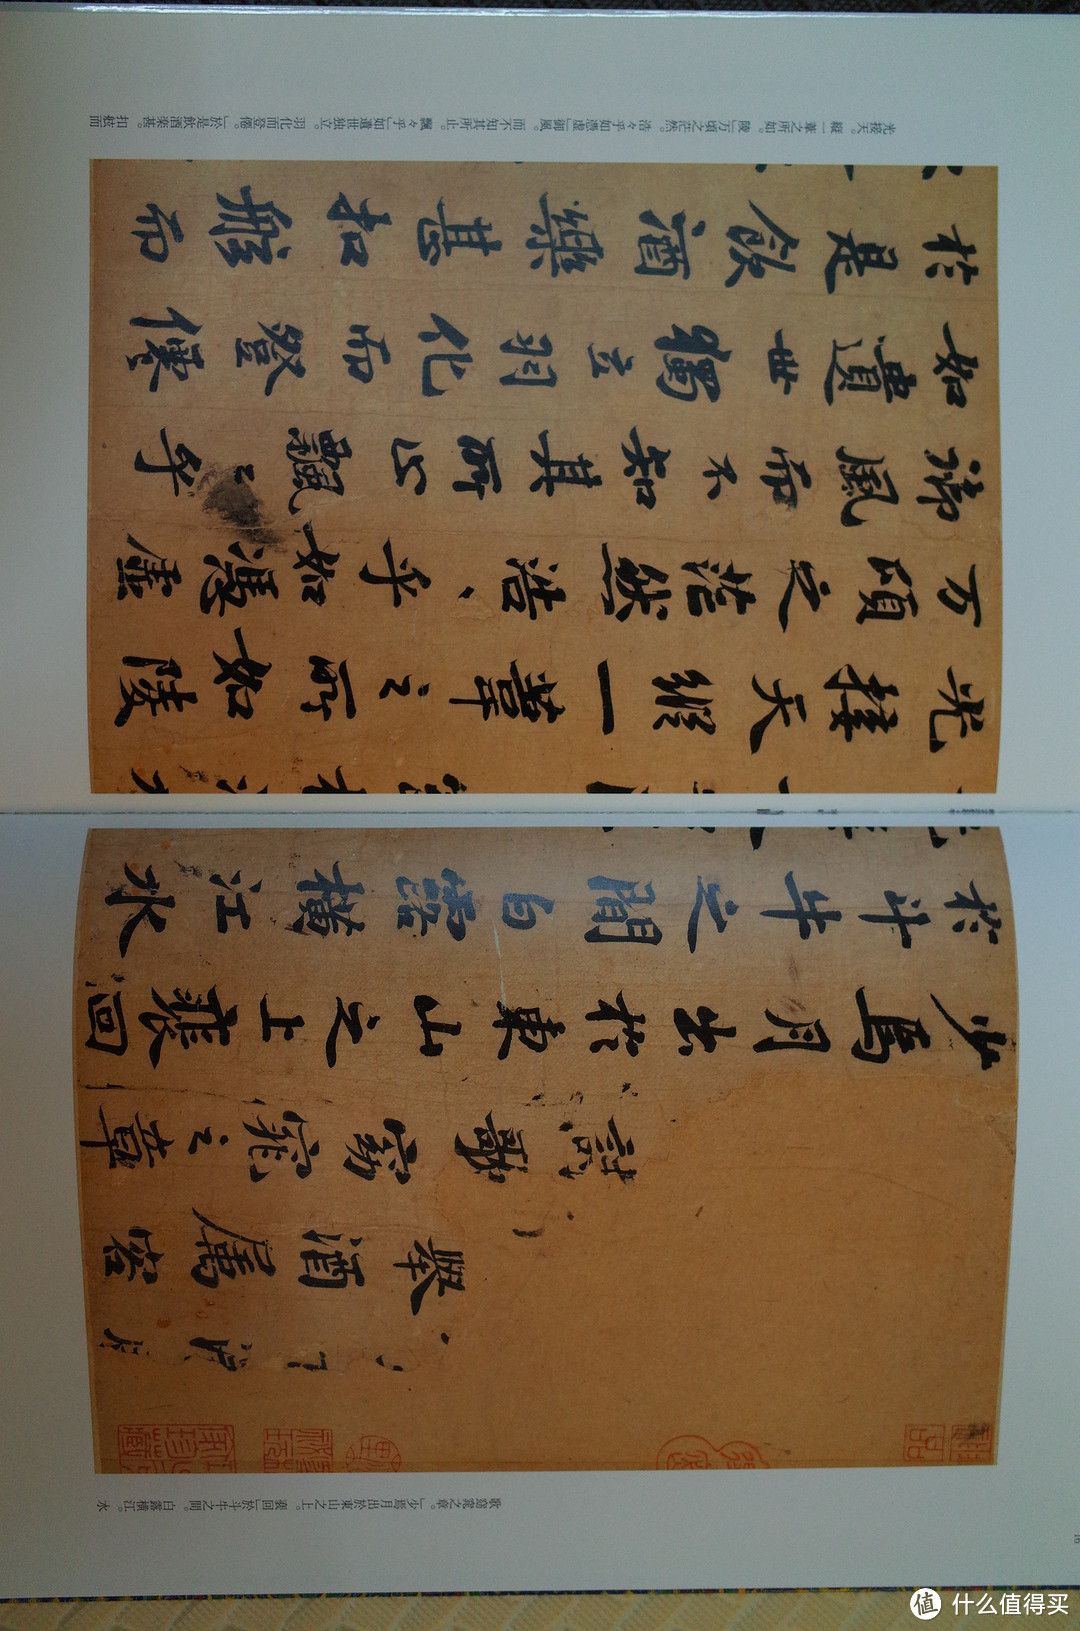 舉酒屬客
詩歌窈窕之章
少焉月出於東山之上裴回
於斗牛之間白露橫江水
歌窈窕之章。」少焉月出於東山之上。裴回」於斗牛之間。白露橫江。水
16
光接天縱一葦之所如陵
万頃之茫然浩々乎如馮虛
御風而不知其所止飄々乎
如遺世獨立羽化而登僊
於是飲酒樂甚扣舷而
光接天。縱一葦之所如。陵」万頃之茫然。浩々乎如憑虛」御風。而不知其所止。飄々乎」如遺世独立。羽化而登僊。」於是飲酒楽甚。扣舷而
值 什么值得买